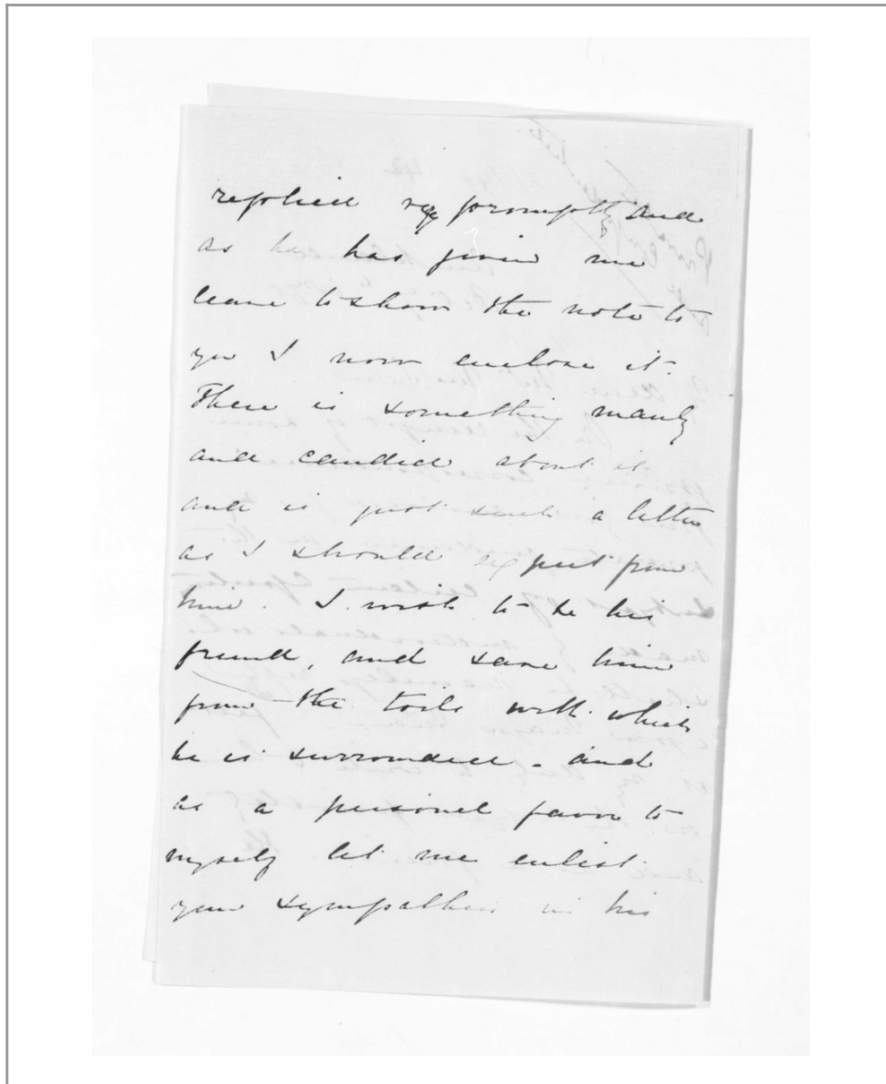 replied very promptly and
as he has given me
leave to show the note to
you I now enclose it.
There is something manly
and candid about it
and is just such a letter
as I should expect from
him. I wish to be his
friend, and save him
from the toils with which
he is surrounded. and
as a personel favor to
myself let me enlist
your sympathies in his